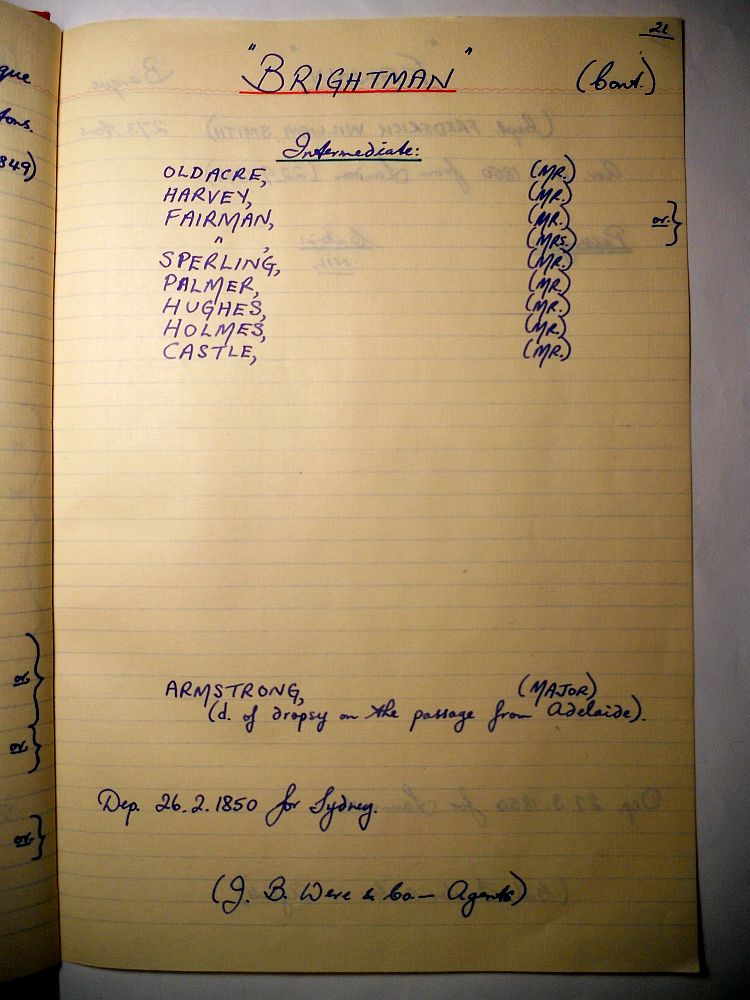 21
"BRIGHTMAN" (Cont.)
Intermediate:
OLDACRE, (MR.)
HARVEY, (MR.)
FAIRMAN, (MR.)
" , (MRS.)
or.
SPERLING, (MR.)
PALMER, (MR.)
HUGHES, (MR.)
HOLMES, (MR.)
CASTLE, (MR.)
ARMSTRONG, (MAJOR)
(d. of dropsy on the passage from Adelaide).
Dep. 26.2.1850 for Sydney.
(J. B. Were & Co — Agents)